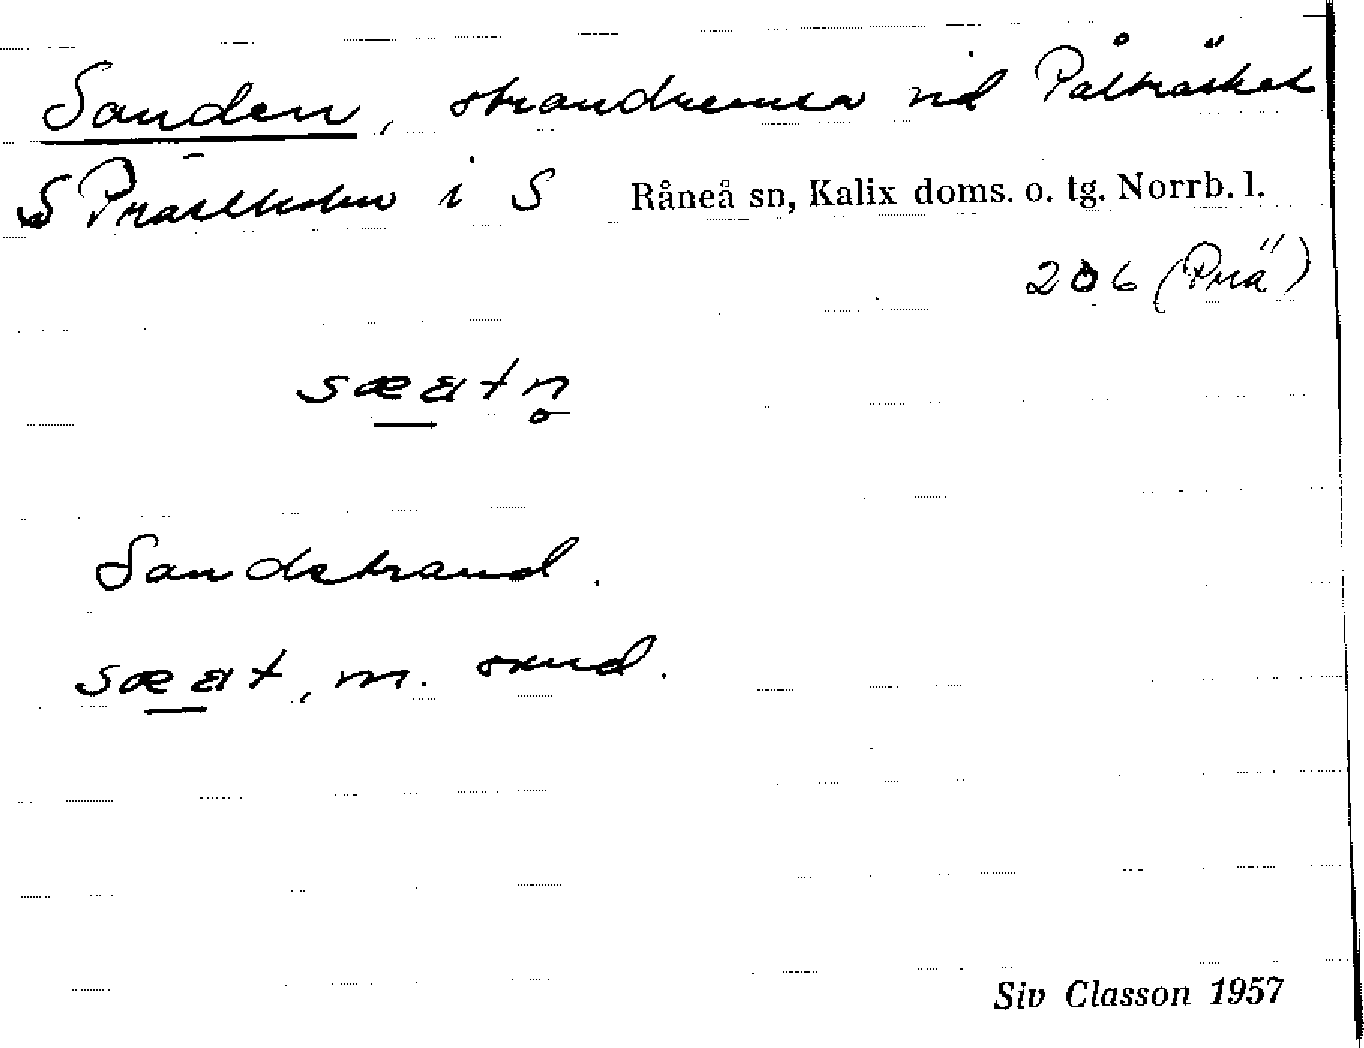 Sanden, strandremsa vid Påträsket
S Prästholm i S Råneå sn, Kalix doms. o. tg. Norrb. l.
206 (Prä)
sæatn̥
Sandstrand.
sæat, m. sand.
Siv Classon 1957